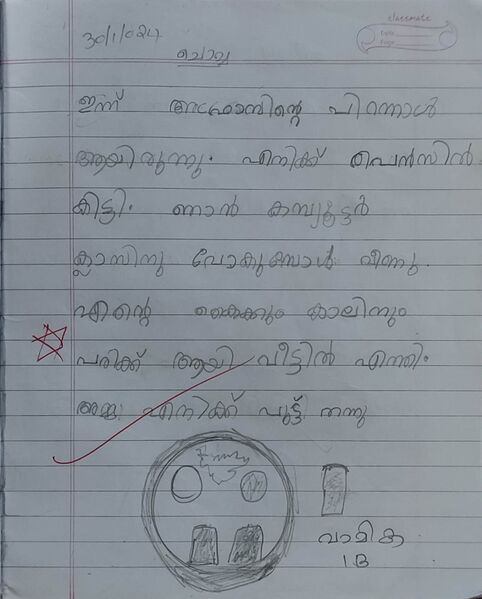 classmate
Date
Page
30/1/024
ചൊവ്വ
ഇന്ന് അഫ്രാസിന്റെ പിറന്നാൾ
ആയിരുന്നു. എനിക്ക് പെൻസിൽ
കിട്ടി. ഞാൻ കമ്പ്യൂട്ടർ
ക്ലാസിനു പോകുമ്പോൾ വീണു.
എന്റെ കൈക്കും കാലിനും
പരിക്ക് ആയി വീട്ടിൽ എത്തി.
അമ്മ എനിക്ക് പുട്ട് തന്നു
വാമിക
1B